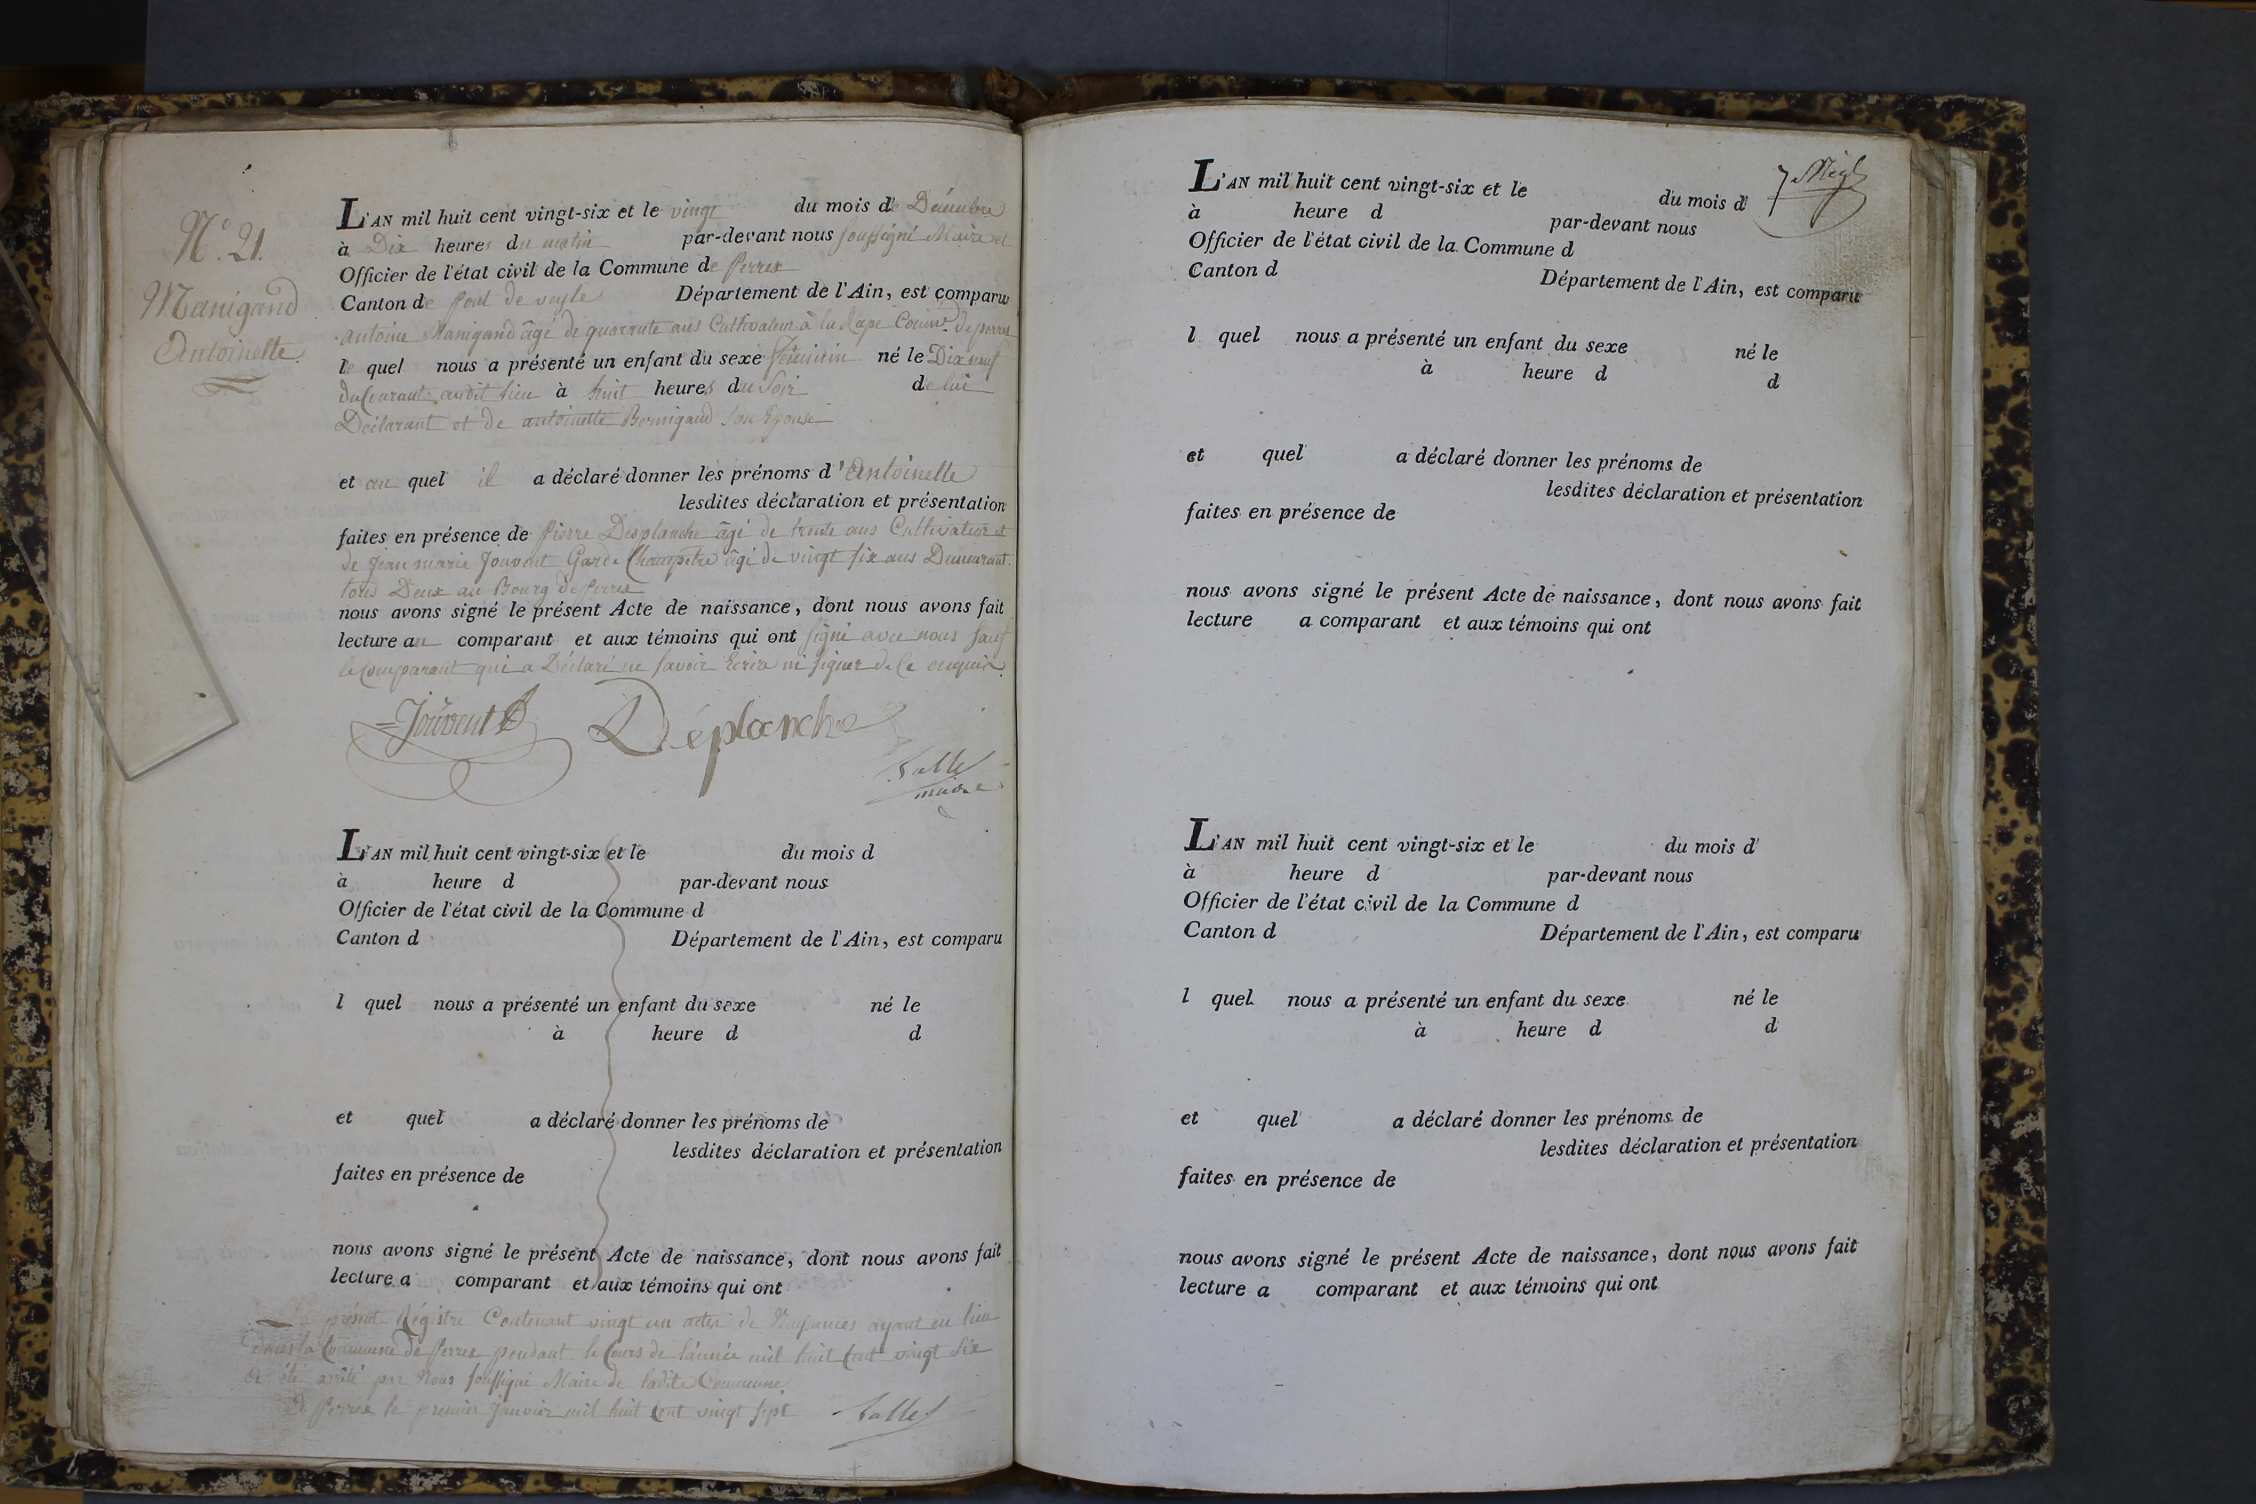 N.° 21.
Manigand
Antoinette
L'AN mil huit cent vingt-six et le vingt du mois de Décembre
à Dix heures du matin par-devant nous soussigné Maire et
Officier de l'état civil de la Commune de Perrex
Canton de Pont de veyle Département de l'Ain, est comparu
antoine Manigand âgé de quarante ans Cultivateur à la Rape Comm.e de perrex
le quel nous a présenté un enfant du sexe féminin né le Dix neuf
du Courant audit lieu à huit heures du Soir de lui
Déclarant et de antoinette Bernigaud son Epouse
et au quel il a déclaré donner les prénoms d'Antoinette
lesdites déclaration et présentation
faites en présence de Pierre Desplanche âgé de trente ans Cultivateur et
de Jean marie Jouvent Garde Champêtre âgé de vingt six ans Demeurant
tous Deux au Bourg de Perrex
nous avons signé le présent Acte de naissance, dont nous avons fait
lecture au comparant et aux témoins qui ont signé avec nous sauf
le Comparant qui a Déclaré ne savoir Ecrire ni signer de Ce enquis
Jouvent Déplanche
maire
L'AN mil huit cent vingt-six et le du mois d
à heure d par-devant nous
Officier de l'état civil de la Commune d
Canton d Département de l'Ain, est comparu
l quel nous a présenté un enfant du sexe né le
à heure d d
et quel a déclaré donner les prénoms de
lesdites déclaration et présentation
faites en présence de
nous avons signé le présent Acte de naissance, dont nous avons fait
lecture a comparant et aux témoins qui ont
présent Régistre Contenant vingt un actes de Naissances ayant eu lieu
dans la Commune de Perrex pendant le Cours de l'année mil huit Cent vingt Six
a été arrêté par Nous soussigné Maire de ladite Commune
à Perrex le premier Janvier mil huit Cent vingt sept
L'AN mil huit cent vingt-six et le du mois d
à heure d par-devant nous
Officier de l'état civil de la Commune d
Canton d Département de l'Ain, est comparu
l quel nous a présenté un enfant du sexe né le
à heure d d
et quel a déclaré donner les prénoms de
lesdites déclaration et présentation
faites en présence de
nous avons signé le présent Acte de naissance, dont nous avons fait
lecture a comparant et aux témoins qui ont
L'AN mil huit cent vingt-six et le du mois d
à heure d par-devant nous
Officier de l'état civil de la Commune d
Canton d Département de l'Ain, est comparu
l quel nous a présenté un enfant du sexe né le
à heure d d
et quel a déclaré donner les prénoms de
lesdites déclaration et présentation
faites en présence de
nous avons signé le présent Acte de naissance, dont nous avons fait
lecture a comparant et aux témoins qui ont